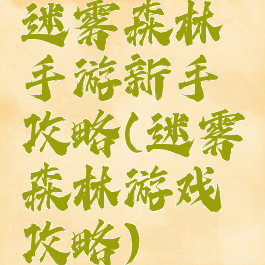 迷雾森林
手游新手
攻略(迷雾
森林游戏
攻略)